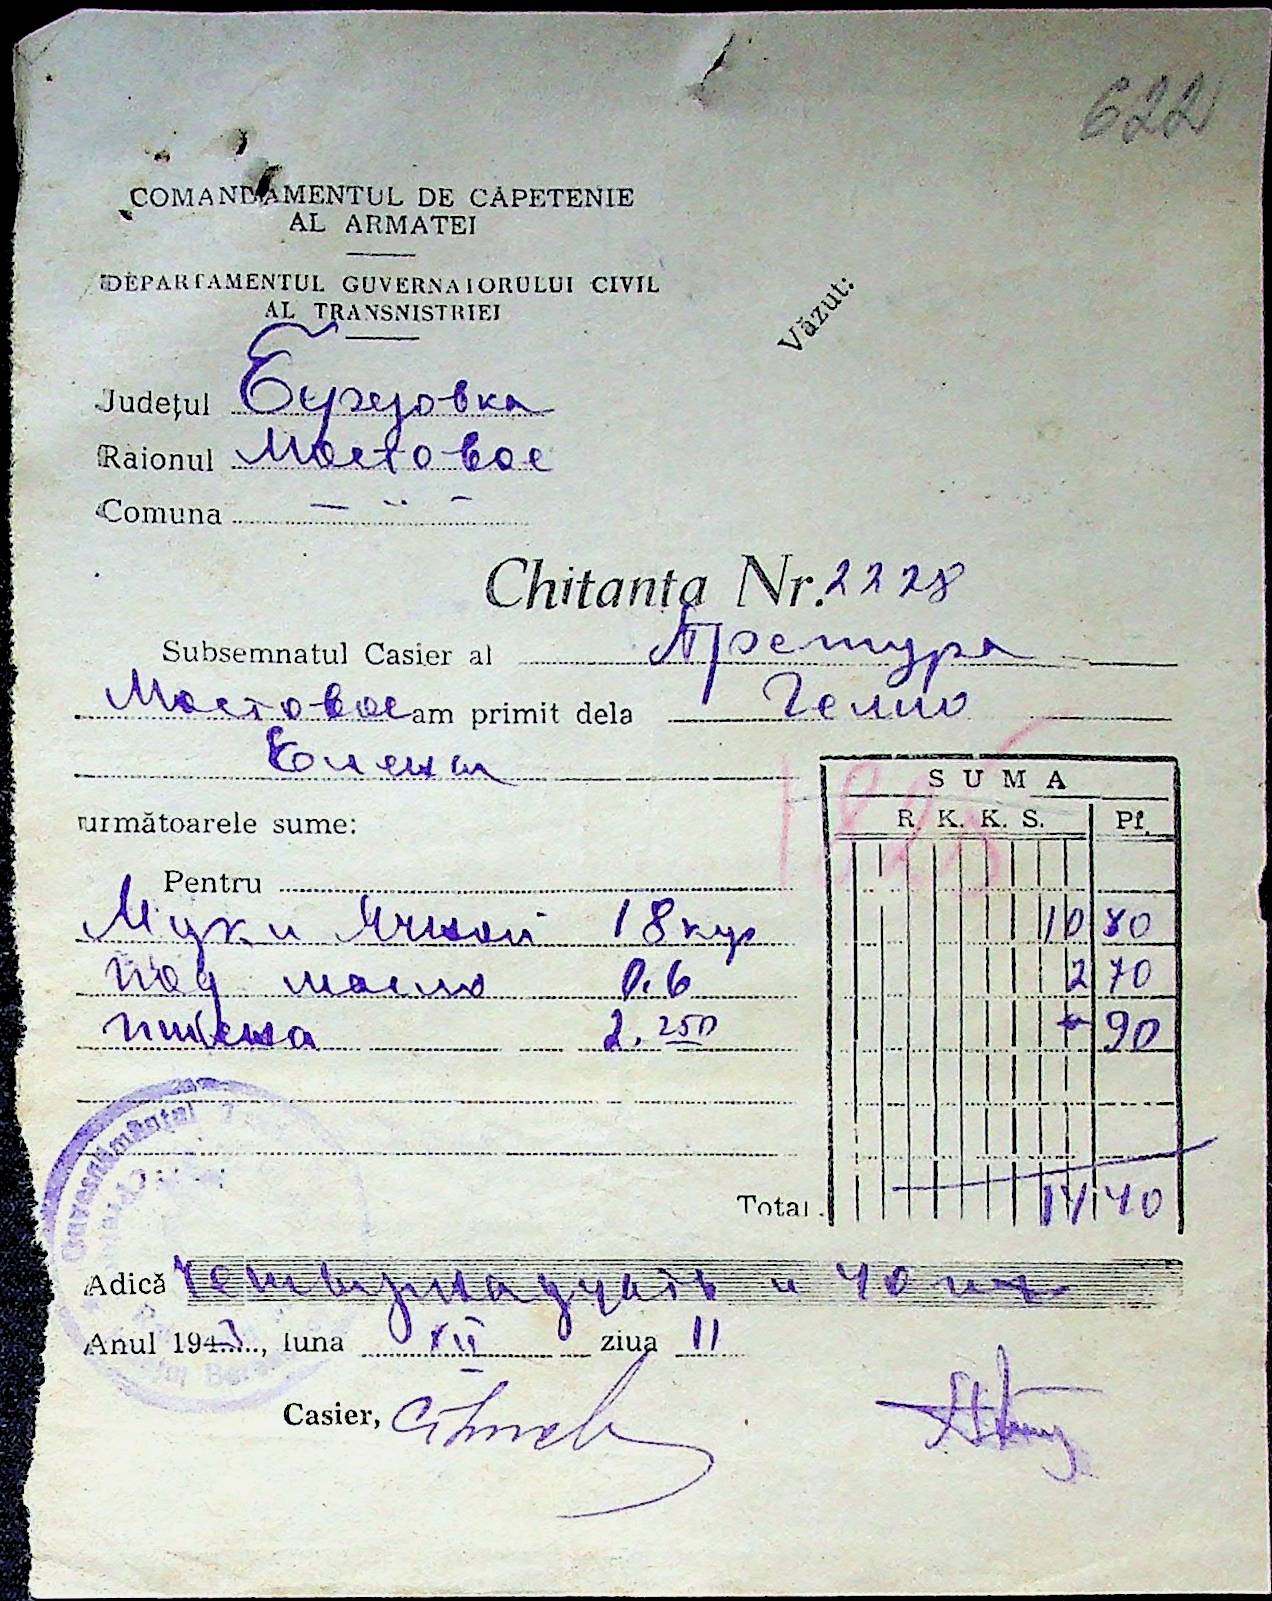 622
COMANDAMENTUL DE CĂPETENIE
AL ARMATEI
DEPARTAMENTUL GUVERNATORULUI CIVIL
AL TRANSNISTRIEI
Văzut:
Județul
Raionul Мостовое
Comuna — „ —
Chitanța Nr. 2228
Subsemnatul Casier al Претура
Мостовое am primit dela
Елена
1825
SUMA
următoarele sume:
R. K. K. S. Pf.
Pentru
Муки Ячной 18 кгр 10 80
под масло 0.6 2 70
пшена 2.250 90
Total 14 40
Adică Четырнадцать и 40 пф
Anul 194, luna XII ziua 11
Casier,